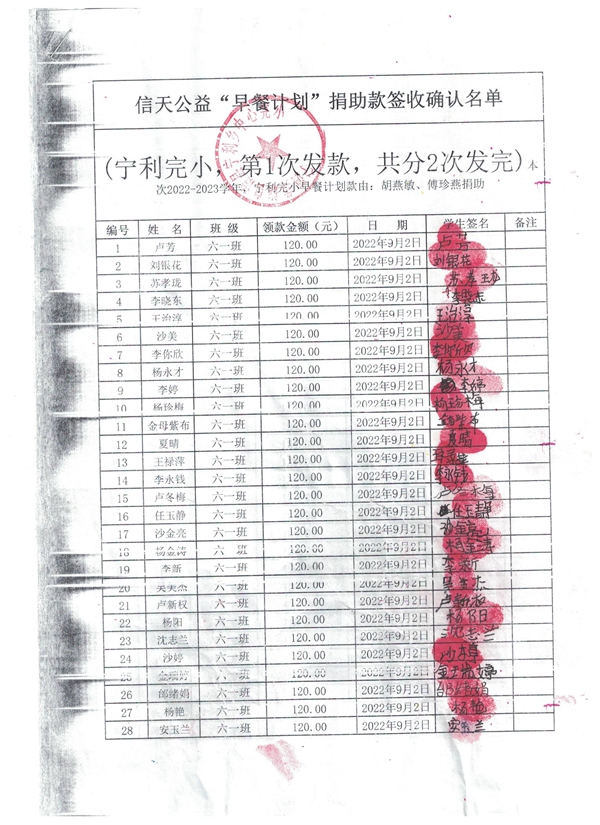 信天公益“早餐计划”捐助款签收确认名单
(宁利完小，第1次发款，共分2次发完) 本
次2022-2023学年，宁利完小早餐计划款由：胡燕敏、傅珍燕捐助
编号 姓 名 班 级 领款金额（元） 日 期 学生签名 备注
1 卢芳 六一班 120.00 2022年9月2日 卢芳
2 刘银花 六一班 120.00 2022年9月2日 刘银花
3 苏孝珑 六一班 120.00 2022年9月2日 苏孝珑
4 李晓东 六一班 120.00 2022年9月2日 李晓东
5 王治淳 六一班 120.00 2022年9月2日 王治淳
6 沙美 六一班 120.00 2022年9月2日 沙美
7 李你欣 六一班 120.00 2022年9月2日 李你欣
8 杨永才 六一班 120.00 2022年9月2日 杨永才
9 李婷 六一班 120.00 2022年9月2日 李婷
10 杨珍梅 六一班 120.00 2022年9月2日 杨珍梅
11 金母紫布 六一班 120.00 2022年9月2日
12 夏晴 六一班 120.00 2022年9月2日 夏晴
13 王禄萍 六一班 120.00 2022年9月2日
14 李永钱 六一班 120.00 2022年9月2日 李永钱
15 卢冬梅 六一班 120.00 2022年9月2日 卢冬梅
16 任玉静 六一班 120.00 2022年9月2日 任玉静
17 沙金亮 六一班 120.00 2022年9月2日 沙金亮
18 杨金涛 六一班 120.00 2022年9月2日
19 李新 六一班 120.00 2022年9月2日 李新
20 吴美杰 六一班 120.00 2022年9月2日
21 卢新权 六一班 120.00 2022年9月2日 卢新权
22 杨阳 六一班 120.00 2022年9月2日 杨阳
23 沈志兰 六一班 120.00 2022年9月2日 沈志兰
24 沙婷 六一班 120.00 2022年9月2日 沙婷
25 金瑞婷 六一班 120.00 2022年9月2日
26 邰绪娟 六一班 120.00 2022年9月2日
27 杨艳 六一班 120.00 2022年9月2日 杨艳
28 安玉兰 六一班 120.00 2022年9月2日 安玉兰